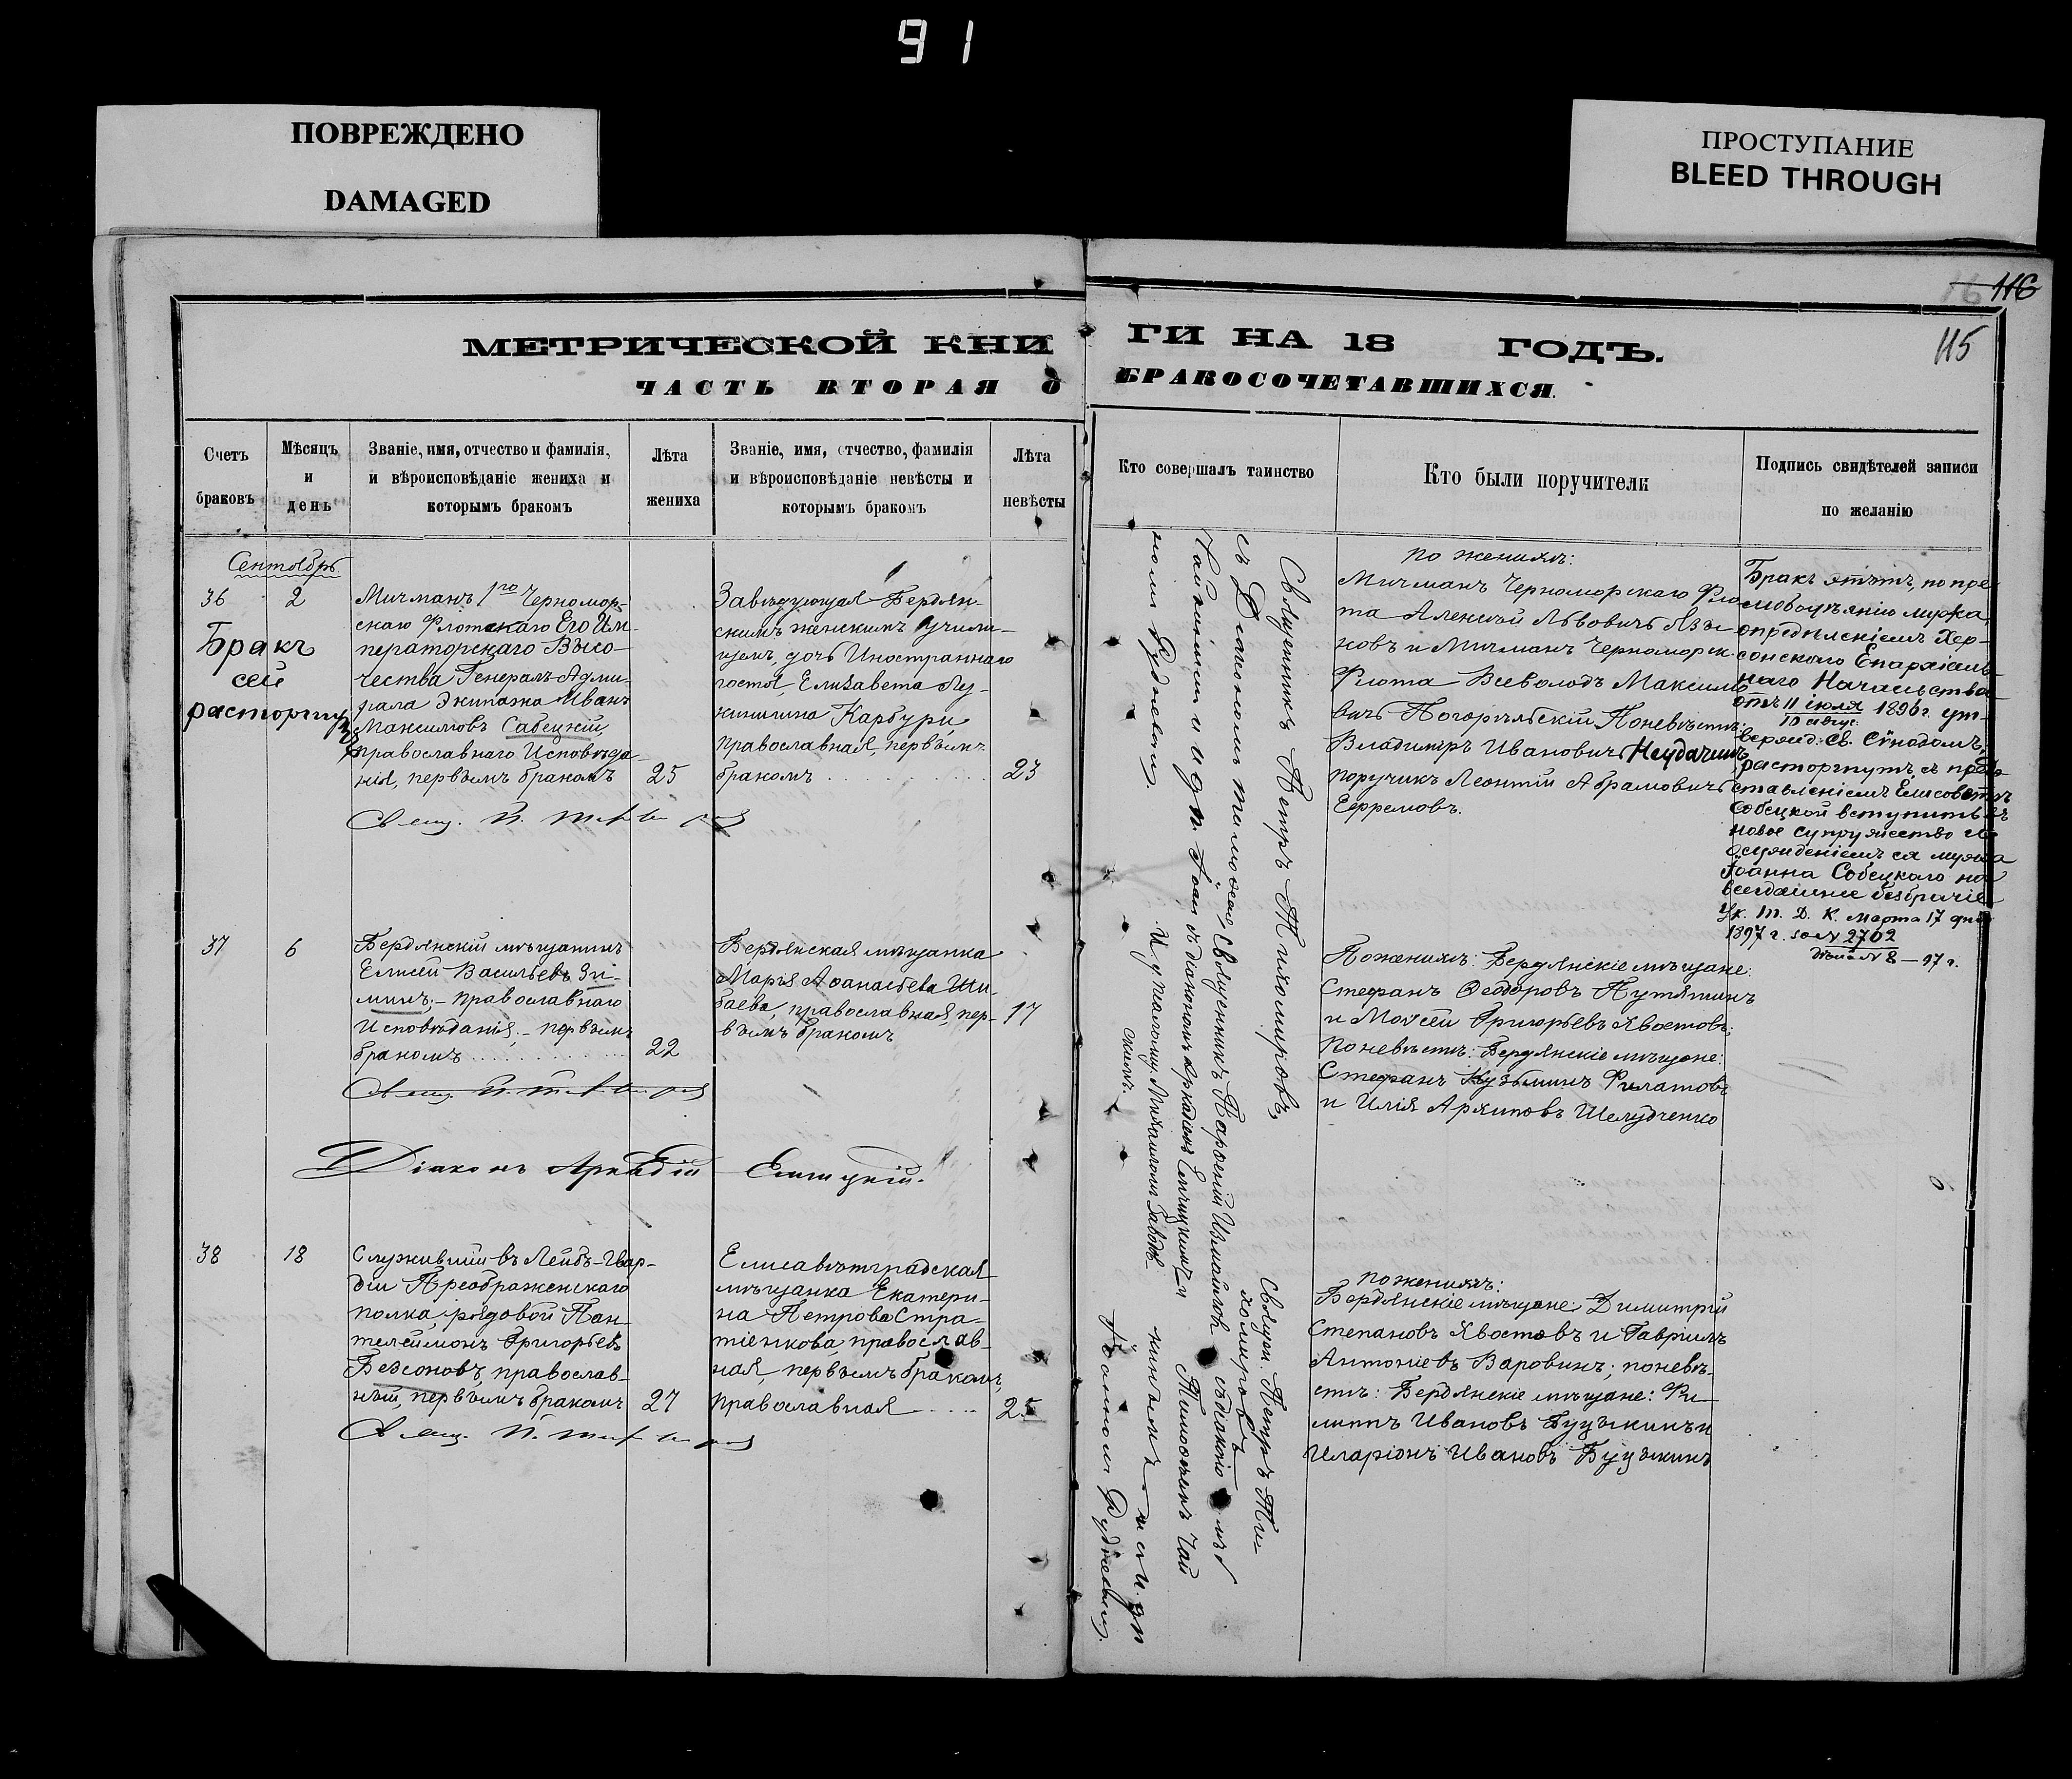 91
ПОВРЕЖДЕНО
DAMAGED
ПРОСТУПАНИЕ
BLEED THROUGH
116
115
МЕТРИЧЕСКОЙ КНИ
ГИ НА 18 ГОДЪ.
ЧАСТЬ ВТОРАЯ О
БРАКОСОЧЕТАВШИХСЯ.
Счетъ
браковъ
Мѣсяцъ
и
день
Званіе, имя, отчество и фамилія,
и вѣроисповѣданіе жениха и
которымъ бракомъ
Лѣта
жениха
Званіе, имя, отчество, фамилія
и вѣроисповѣданіе невѣсты и
которымъ бракомъ
Лѣта
невѣсты
Кто совершалъ таинство
Кто были поручители
Подпись свидѣтелей записи
по желанію
Сентябрь
36
2
Бракъ
сей
расторгнутъ
Мичманъ 1го Черномор-
скаго Флотскаго Его Им-
ператорскаго Высо-
чества Генералъ-Адми-
рала Экипажа Иванъ
Максимовъ Сабецкій,
православнаго Исповѣда-
нія, первымъ бракомъ 25
Завѣдующая Бердян-
скимъ женскимъ училы-
щемъ, дочь Иностраннаго
гостя, Елизавета Лу-
кинична Карбури,
православная, первымъ
бракомъ 23
Священникъ Петръ Тихомировъ
номъ Рудневымъ.
по женихѣ:
Мичманъ Черноморскаго Фло-
та Алексѣй Львовичъ Язы-
ковъ и Мичманъ Черноморск.
Флота Всеволодъ Максимо-
вичъ Погорѣльскій. По невѣстѣ:
Владиміръ Ивановичъ Неудачинъ
поручикъ Леонтій Абрамовичъ
Ефремовъ.
Бракъ этотъ, по пре-
любодѣянію мужа,
опредѣленіемъ Хер-
сонскаго Епархіаль-
наго Начальства
отъ 11 іюля 1896 г. ут-
10 авгус.
вержд. Св. Сѵнодомъ,
расторгнутъ, съ предо-
ставленіемъ Елисаветѣ
Собецкой вступить въ
новое супружество и
осужденіемъ ея мужа
Іоанна Собецкаго на
всегдашнее безбрачіе
Ук. Т. Д. К. Марта 17 дня
1897 г. за № 2702
дѣло № 8 — 97 г.
37
6
Бердянскій мѣщанинъ
Елисей Васильевъ Зи-
минъ, - православнаго
Исповѣданія, - первымъ
бракомъ 22
Бердянская мѣщанка
Марія Аѳанасьева Ши-
баева, православная, пер- 17
вымъ бракомъ
По женихѣ: Бердянскіе мѣщане:
Стефанъ Ѳеодоровъ Путятинъ
и Моѵсей Григорьевъ Хвостовъ;
По невѣстѣ: Бердянскіе мѣщане:
Стефанъ Кузьминъ Филатовъ
и Илія Архиповъ Шелудченко
Діаконъ Аркадій
38
18
Служившій въ Лейбъ-Гвар-
діи Преображенскаго
полка, рядовой Пан-
телеймонъ Григорьевъ
Безсоновъ, православ-
ный, первымъ бракомъ 27
Елисаветградская
мѣщанка Екатери-
на Петрова Стра-
тіенкова, православ-
ная, первымъ бракомъ,
православная 25
Священ. Петръ Ти-
хомировъ
Іоанномъ Рудневымъ.
по женихѣ:
Бердянскіе мѣщане: Димитрій
Степановъ Хвостовъ и Гавріилъ
Антоніевъ Варовинъ; по невѣ-
стѣ: Бердянскіе мѣщане: Фи-
липпъ Ивановъ Бузькинъ и
Иларіонъ Ивановъ Бузькинъ